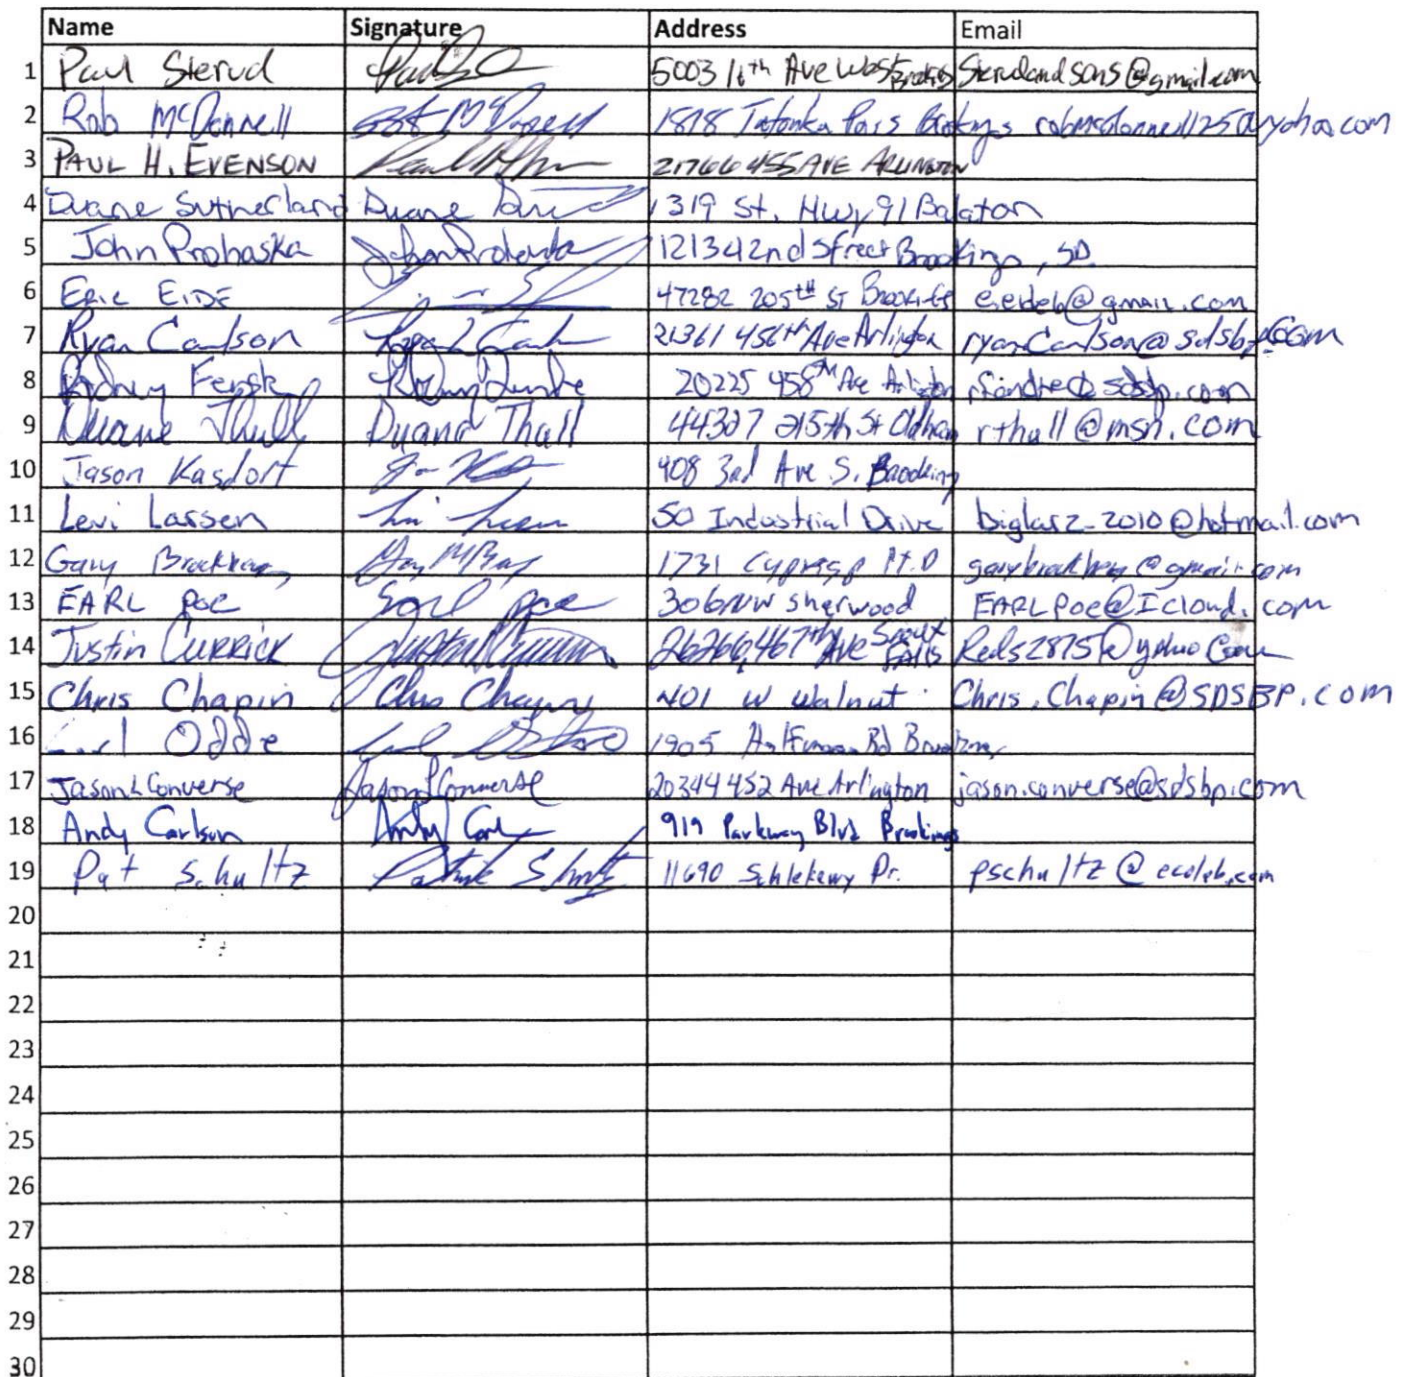 Name Signature Address Email
1 Paul Sterud 5003 16th Ave West Brookings Sterudandsons@gmail.com
2 Rob McDonnell Rob McDonnell 1818 Tatonka Pass Brookings robmcdonnell125@yahoo.com
3 PAUL H. EVENSON 21766 455 AVE ARLINGTON
4 Duane Sutherland Duane 1319 St. Hwy 91 Balaton
5 John Prohaska John Prohaska 1213 42nd Street Brookings, SD.
6 ERIC EIDE 47282 205th ST Brookings e.eide6@gmail.com
7 Ryan Carlson 21361 456th Ave Arlington ryan.Carlson@sdsbp.com
8 Rodney 20225 458th Ave Arlington
9 Duane Thall Duane Thall 44327 215th St Oldham rthall@msn.com
10 Jason Kasdorf 408 3rd Ave S. Brookings
11 Levi Larsen 50 Industrial Drive biglarz_2010@hotmail.com
12 Gary 1731 Cypress
13 EARL POE Earl Poe 306 NW Sherwood EARLPOE@Icloud.com
14 Justin CURRICK 26266 467th AVE Sioux Falls Reds2875@yahoo.com
15 Chris Chapin Chris Chapin 401 W Walnut Chris.Chapin@SDSBP.com
16 Odde 1905 Rd
17 Jason L Converse Jason L Converse 20344 452 Ave Arlington jason.converse@sdsbp.com
18 Andy Carlson Andy 919 Parkway Blvd Brookings
19 Pat Schultz Patrick Schultz 11690 Dr. pschultz@ecolab.com
20
21
22
23
24
25
26
27
28
29
30